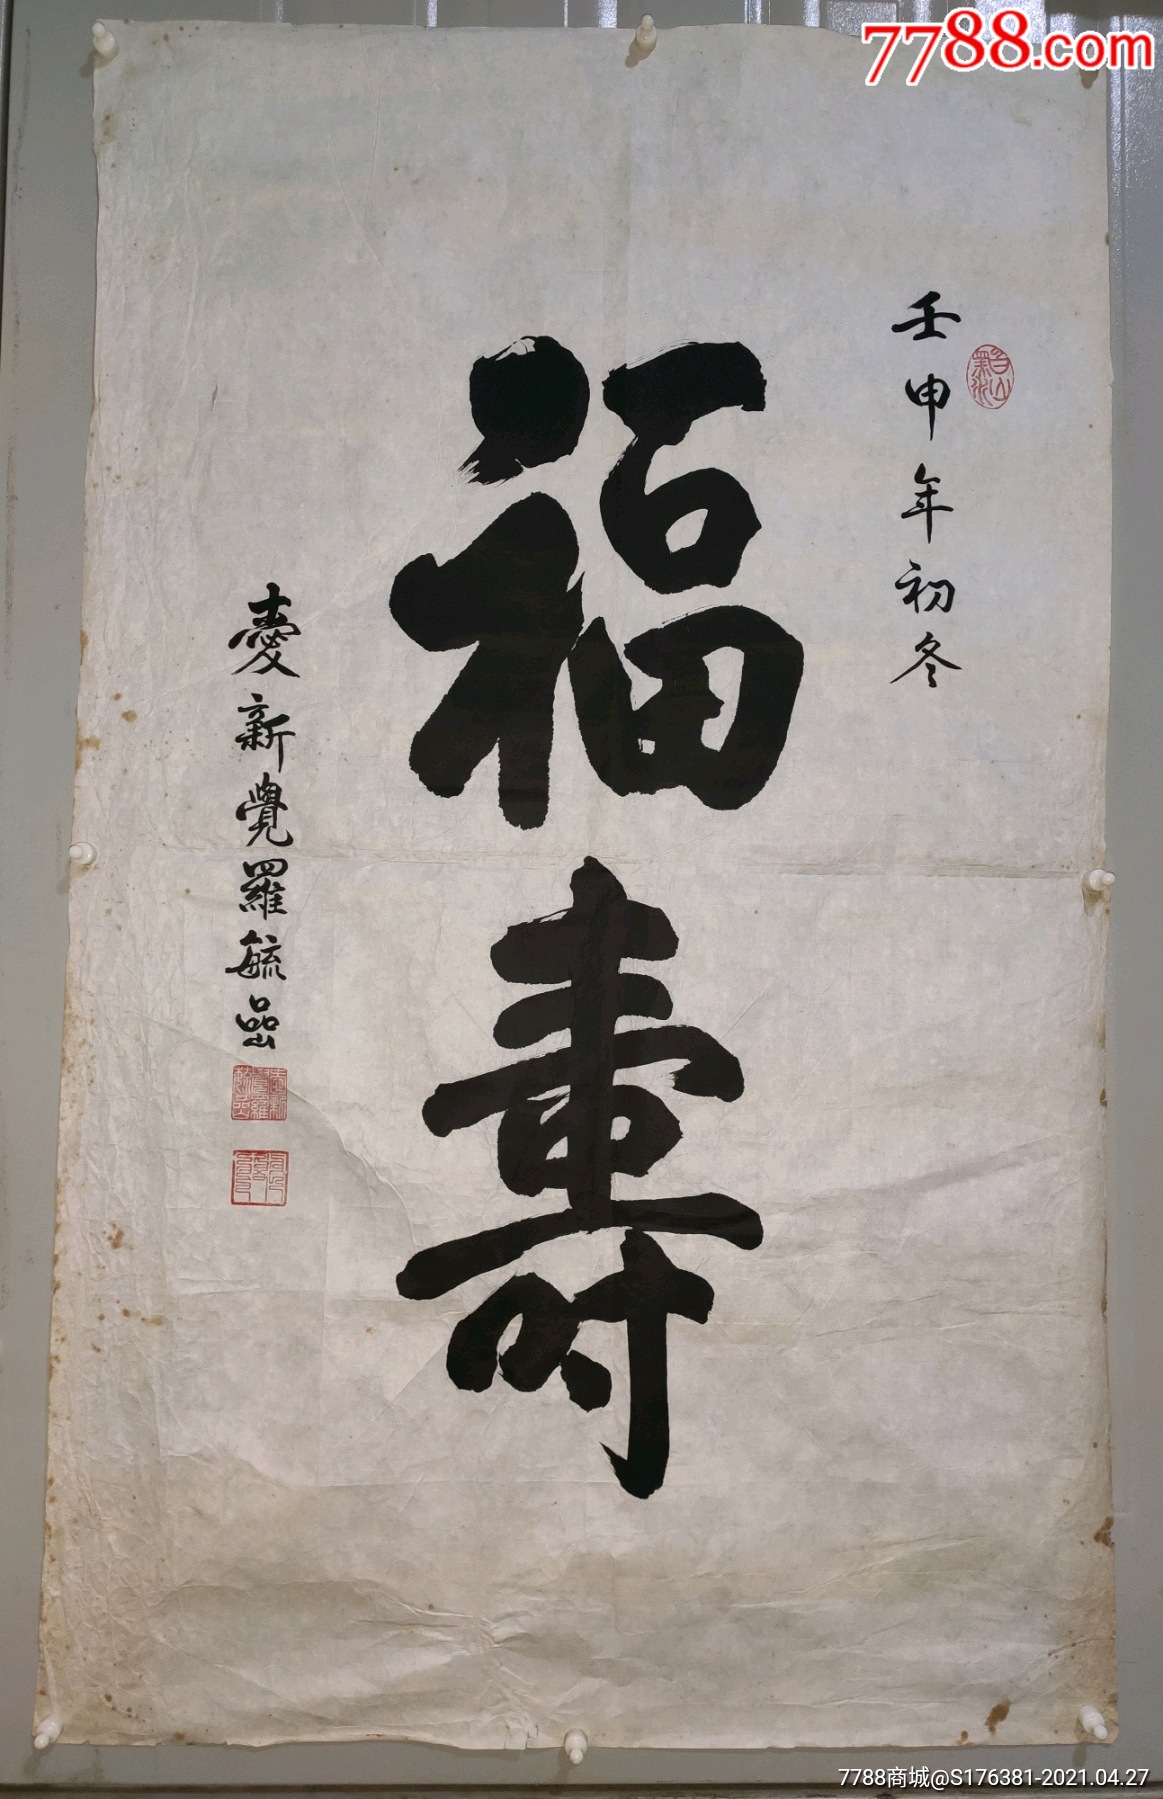 7788.com
壬申年初冬
福壽
愛新覺羅毓嵒
愛新覺羅毓嵒
7788商城@S176381-2021.04.27